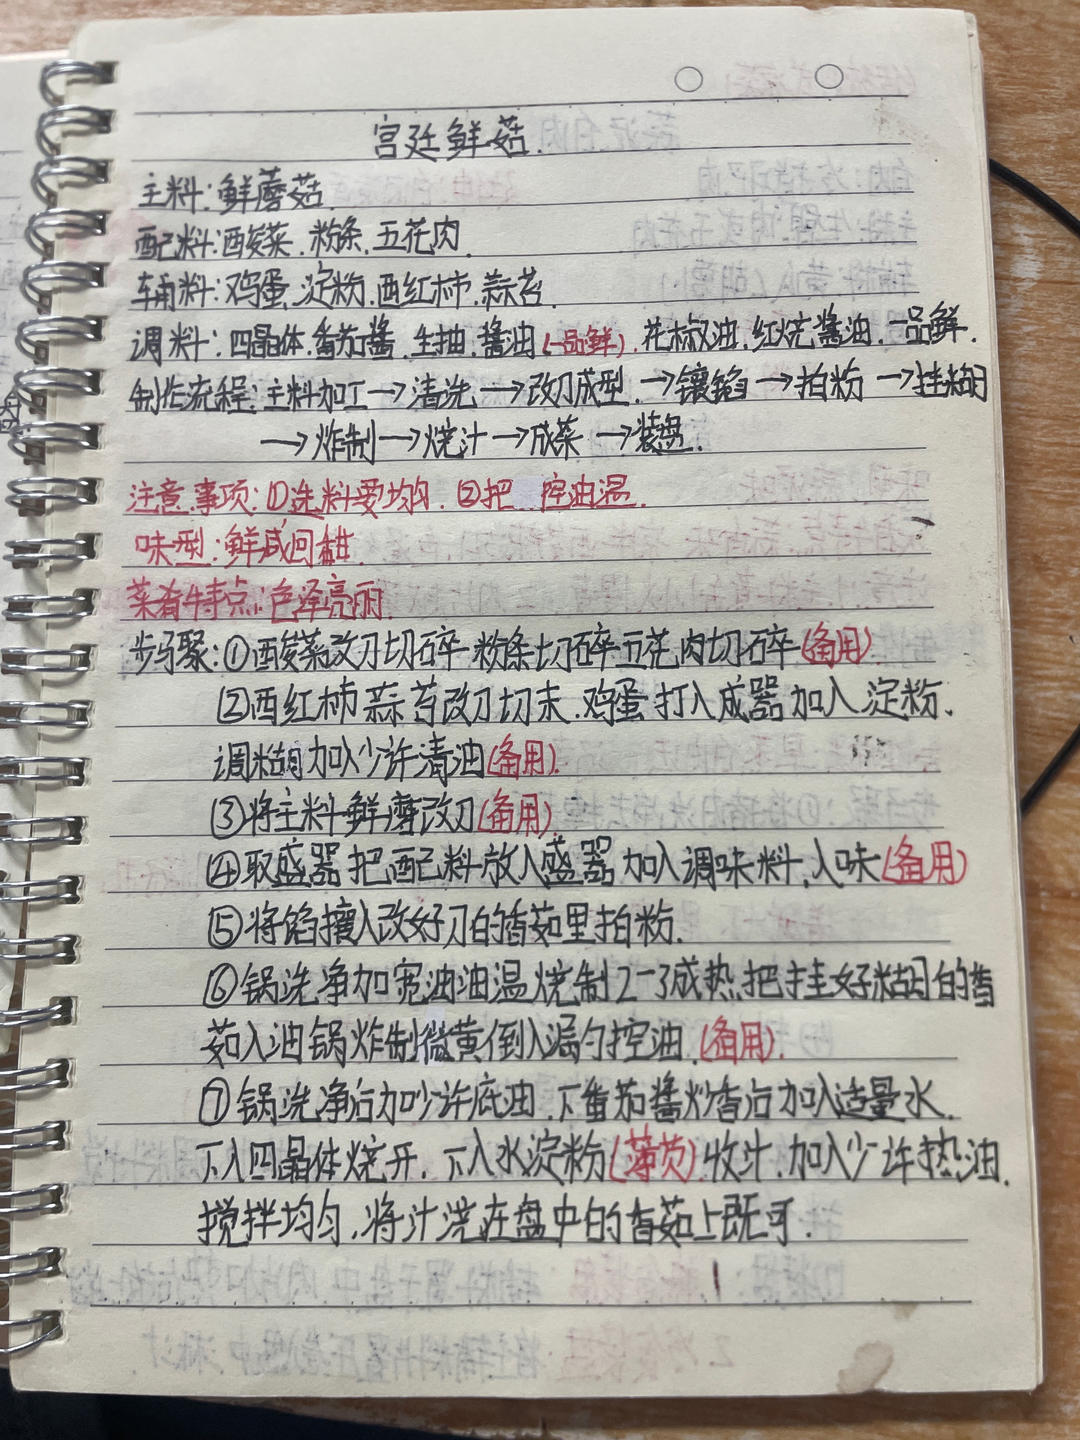 宫廷鲜菇.
主料:鲜蘑菇.
配料:酸菜.粉条.五花肉.
辅料:鸡蛋.淀粉.西红柿.蒜苔.
调料:四晶体.番茄酱.生抽.酱油(一品鲜).花椒油.红烧酱油.一品鲜.
制作流程:主料加工→清洗→改刀成型.→镶馅→拍粉→挂糊
→炸制→烧汁→成菜→装盘.
注意事项:①选料要均匀.②把 控油温.
味型:鲜咸回甜.
菜肴特点:色泽亮丽.
步骤:①酸菜改刀切碎粉条切碎五花肉切碎(备用)
②西红柿蒜苔改刀切末.鸡蛋打入成器加入淀粉.
调糊加入少许清油(备用).
③将主料鲜蘑改刀(备用)
④取盛器把配料放入盛器加入调味料.入味(备用)
⑤将馅攘入改好刀的香茹里拍粉.
⑥锅洗净加宽油油温烧制2-3成热把挂好糊的香
茹入油锅炸制微黄倒入漏勺控油.(备用).
⑦锅洗净后加少许底油.下番茄酱炒香后加入适量水.
下入四晶体烧开.下入水淀粉(薄芡)收汁.加入少许热油.
搅拌均匀.将汁浇在盘中的香茹上既可.